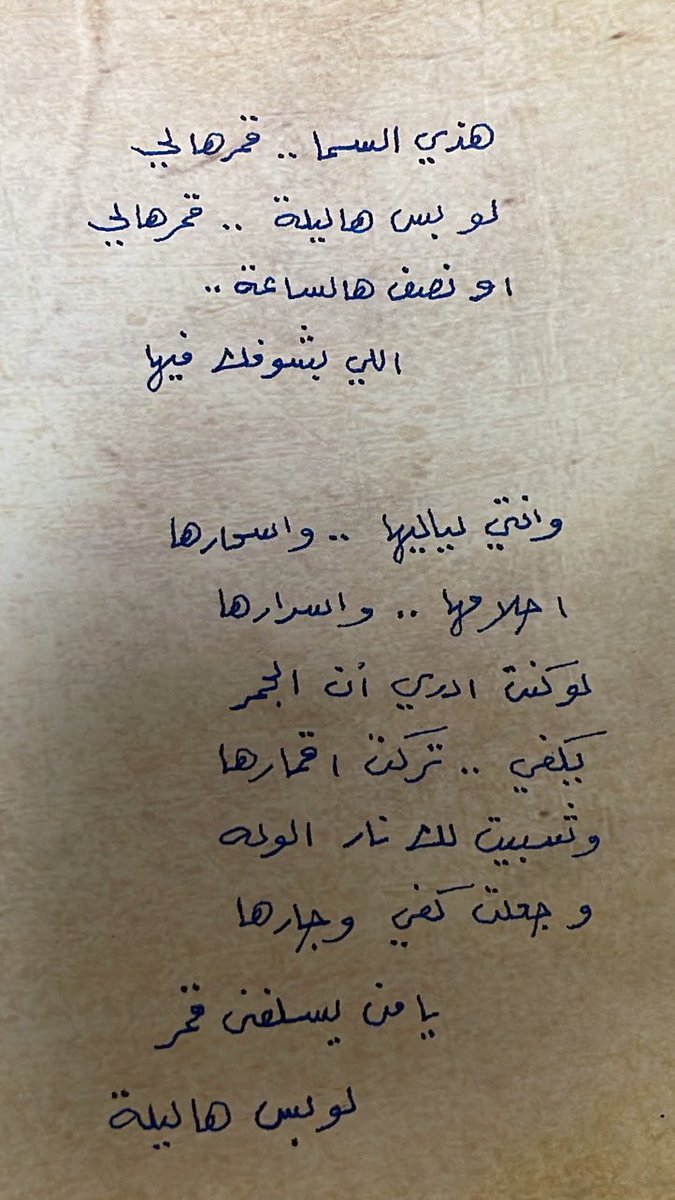 هذي السما .. قمرها لي
لو بس هاليلة .. قمرها لي
او نصف هالساعة ..
اللي بشوفك فيها
وانتي لياليها .. واسحارها
احلامها .. واسرارها
لو كنت ادري أن الجمر
يكفي .. تركت اقمارها
وشبيت لك نار الوله
وجعلت كفي وجارها
يا من يسلفني قمر
لو بس هاليلة